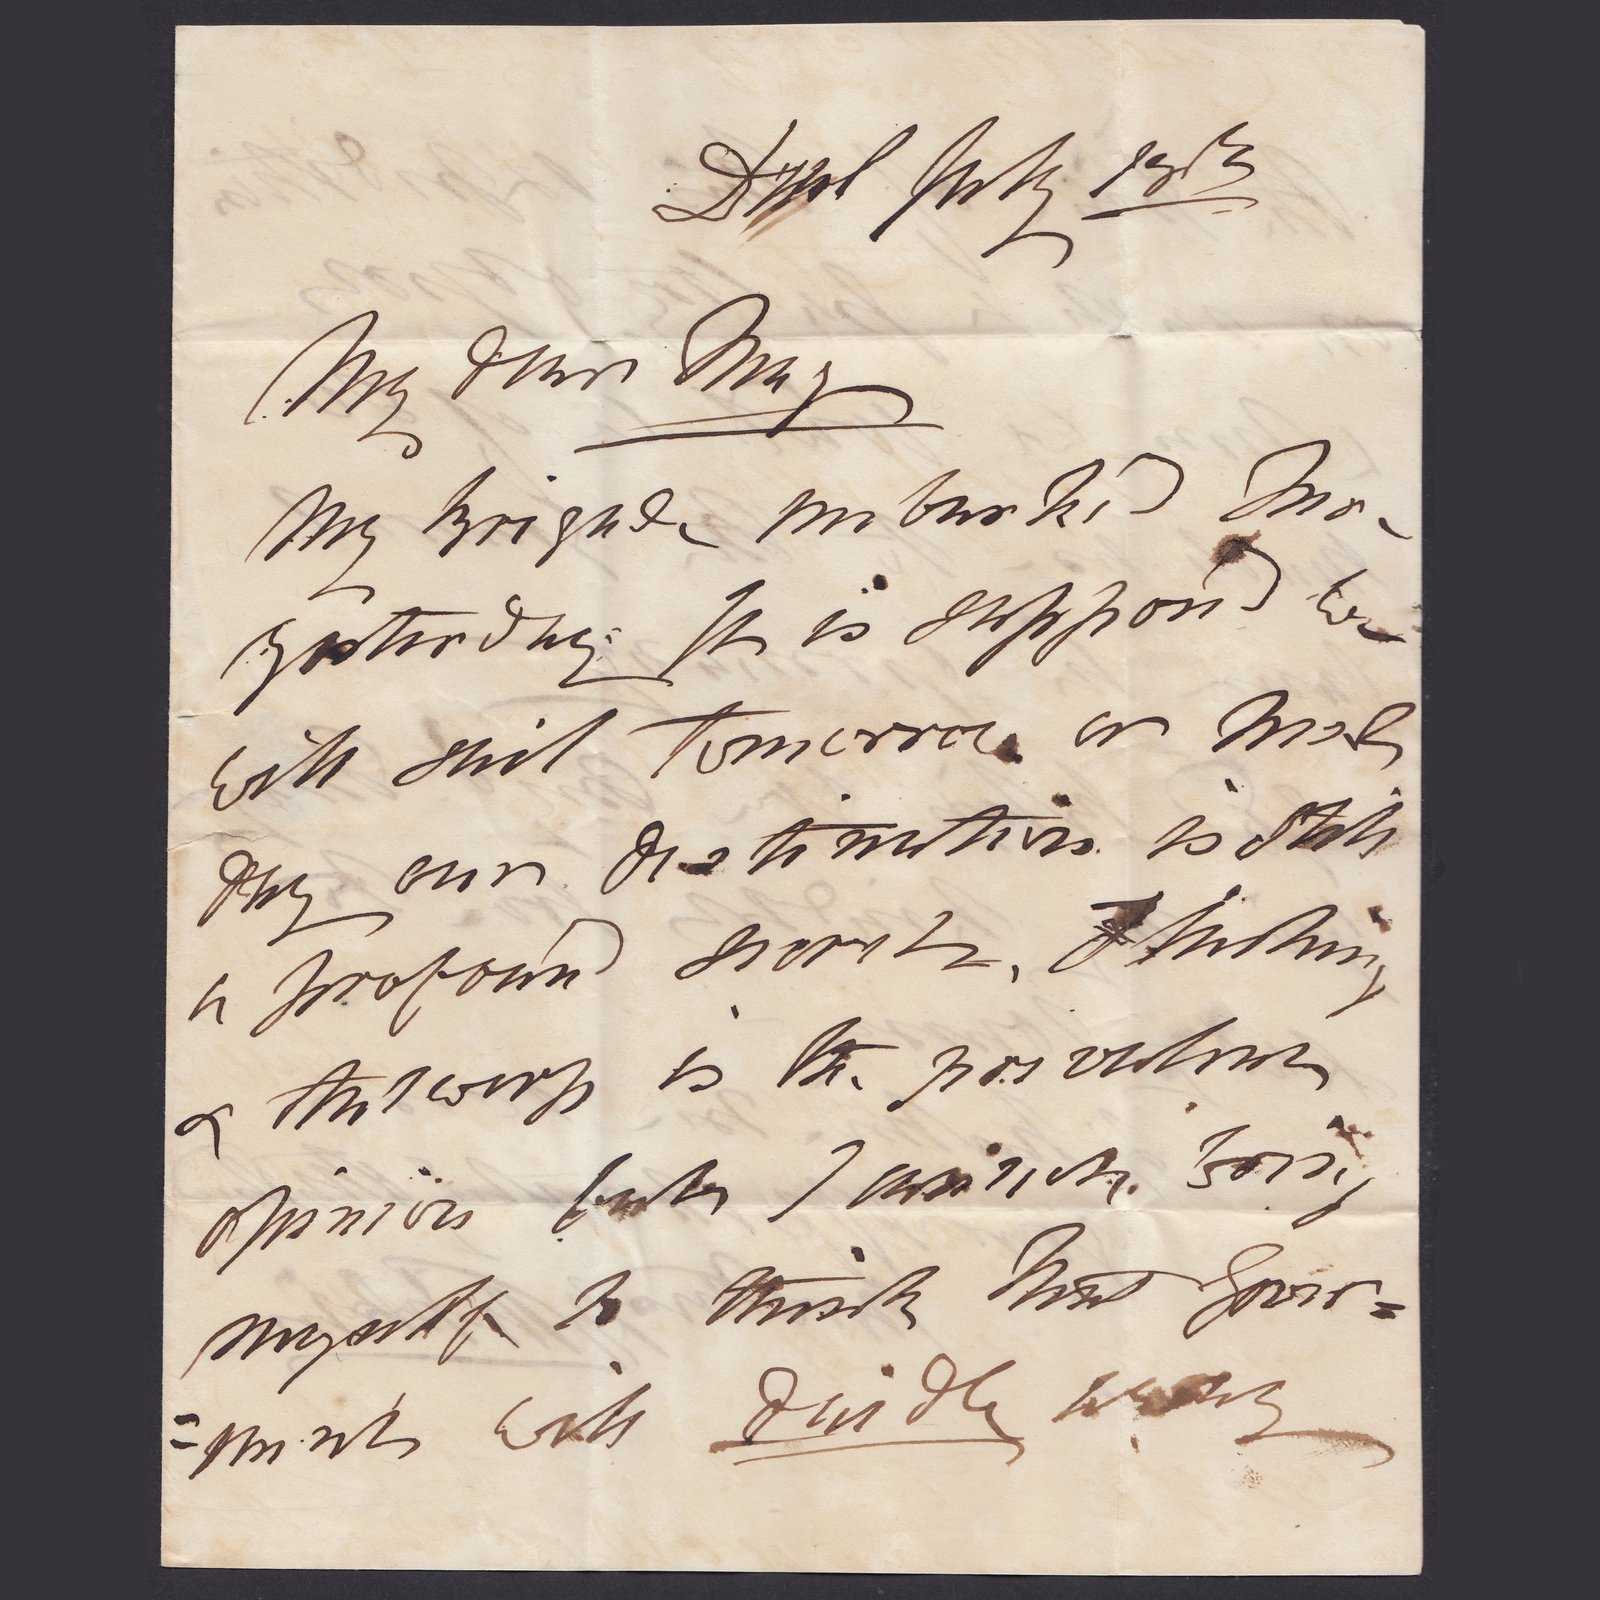 Deal July 19th
My dear May
My Brigade embarked here
yesterday It is supposed we
will sail tomorrow or next
day our destination is still
a profound secret. Flushing
& Antwerp is the prevalent
opinion but I cannot bring
myself to think that Govern=
=ment will